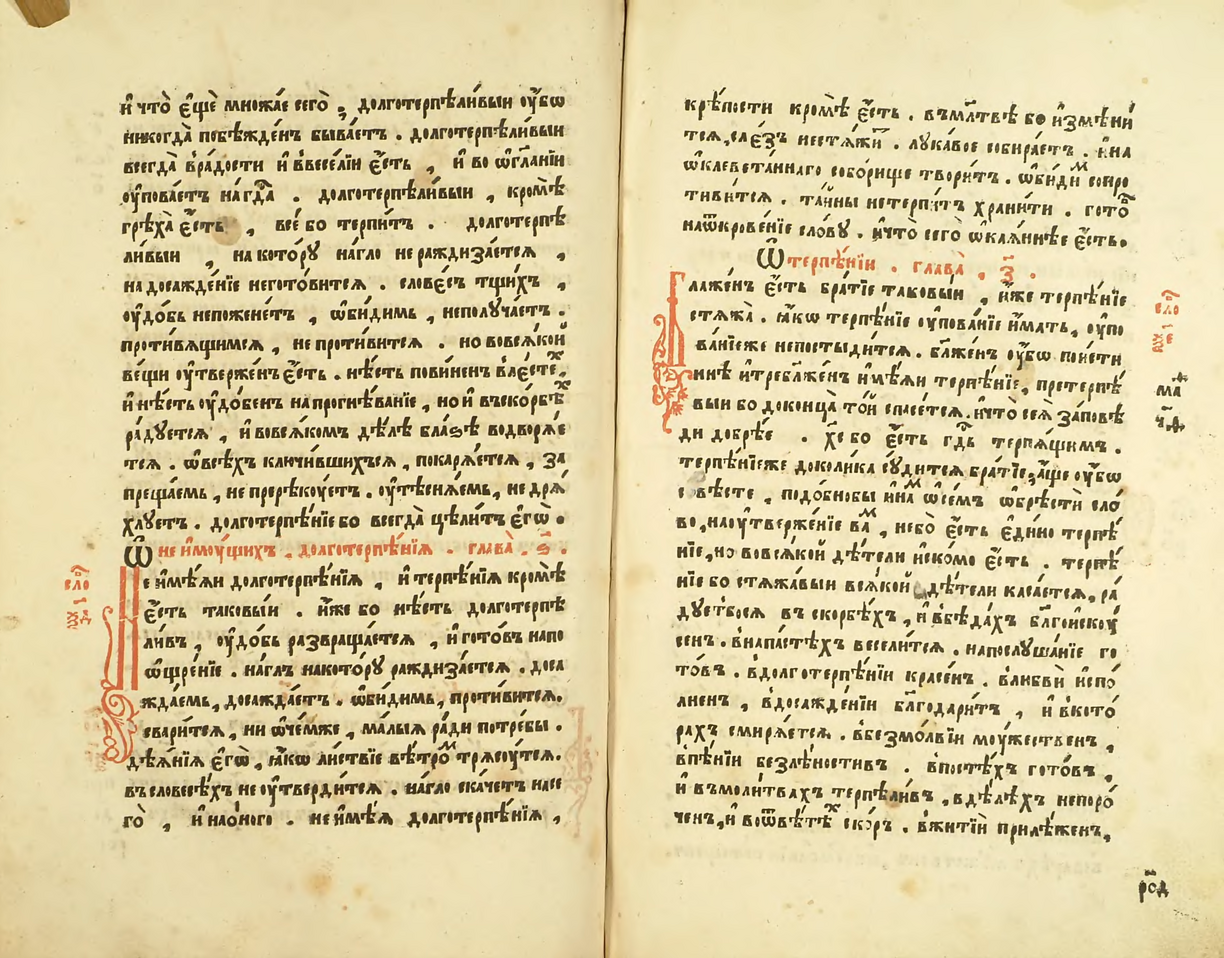 и҆ что̀ є҆щѐ мно́жае сего̀ ; долготерпѣли́выи оу҆́бѡ
никогда̀ побѣжде́нъ быва́етъ . долготерпѣли́выи
всегда̀ в̾ра́дости и҆ ввесе́лїи є҆́сть , и҆ во ѡ҆гл҃а́нїи
оу҆пова́етъ на гдⷭ҇а . долготерпѣли́выи , кромѣ̀
грѣха̀ є҆́сть , все́ бо терпи́тъ . долготерпѣ
ли́выи , на кото́рꙋ на́гло не раждиза́етсѧ ,
на досажде́нїе негото́витсѧ . слове́съ тщи́хъ ,
оу҆до́бь непожене́тъ , ѡ҆би́димь , неполꙋча́етъ .
проти́вѧщимсѧ , не проти́витсѧ . но вовсѧ́кой
ве́щи оу҆тверже́нъ є҆́сть . нѣ́сть пови́ненъ влє́стеⷯ,
и҆ нѣ́сть оу҆до́бенъ на прогнѣ́ванїе , но и҆ въско́рбеⷯ
ра́дꙋетсѧ , и҆ вовсѧ́комъ дѣ́лѣ бла́ѕѣ водворѧ́е
тсѧ . ѡ҆всѣ́хъ ключи́вшихъсѧ , покарѧ́етсѧ , за
преща́емь , не прерѣ́коꙋетъ . оу҆тѣснѧ́емь , не дрѧ́
хлꙋетъ . долготерпѣ́нїе бо всегда̀ цѣли́тъ є҆го̀ .
Ѡ҆ не и҆мꙋ́щихъ . долготерпѣ́нїѧ . глава̀ . ѕ҃ .
сло́ д҃і
Не и҆мѣ́ѧи долготерпѣ́нїѧ , и҆ терпѣ́нїѧ кромѣ̀
є҆́сть таковы́и . и҆́же бо нѣ́сть долготерпѣ
ли́въ , оу҆до́бь развраща́етсѧ , и҆ гото́въ напо
ѡ҆щре́нїе . на́глъ накото́рꙋ раждиза́етсѧ . доса
жда́емь, досажда́етъ . ѡ҆би́димь, проти́витсѧ.
сва́ритсѧ , ни ѡ҆че́мже , ма́лыѧ ра́ди потре́бы .
дѣѧ́нїѧ є҆гѡ̀ , ꙗ҆́кѡ ли́ствїе вѣ́троⷨ трѧсꙋ́тсѧ.
въ словесѣ́хъ не оу҆тверди́тсѧ . на́гло ска́четъ насе
го̀ , и҆ нао́ного . не и҆мѣ́ѧ долготерпѣ́нїѧ ,
крѣ́пости кромѣ̀ є҆́сть . въ мл҃твѣ бо и҆змѣни́
тсѧ, сле́зъ нестѧ́жи . лꙋка́вое собира́етъ . и҆на
ѡ҆клевета́ннаго собо́рище твори́тъ . ѡ҆би́диⷨ сопро
ти́витсѧ . та́йны не терпи́тъ храни́ти . гото́въ
наѿкрове́нїе сло́вꙋ . и҆ что̀ сего̀ ѡ҆каѧ́ннѣе є҆́сть.
Ѿ терпѣ́нїи . глава̀ , з҃ .
сло́ є҃і
Блаже́нъ є҆́сть бра́тїе таковы́и , и҆́же терпѣ́нїе
стѧжа̀ . ꙗ҆́кѡ терпѣ́нїе оу҆пова́нїе и҆́мать, оу҆по
ва́нїеже непостыди́тсѧ . бл҃же́нъ оу҆́бѡ пои́сти
ма҃ⷴ ч҃ⷴ
ннѣ и҆ требл҃же́нъ и҆мѣ́ѧи терпѣ́нїе, претерпѣ́
выи бо доконца̀ то́й спасе́тсѧ . и҆ что̀ сеѧ̀ за́повѣ
ди до́брѣе . хе҃ бо є҆́сть гдⷭ҇ь терпѧ́щимъ .
терпѣ́нїеже доколи́ка сꙋди́тсѧ бра́тїе; а҆́ще оу҆́бѡ
свѣ́сте , подо́бнобы и҆на́ⷨ ѡ҆се́мъ ѡ҆брѣ́сти сло́
во, наоу҆твержде́нїе ва́ⷨ , не бо̀ є҆́сть є҆ди́но терпѣ́
нїе, но вовсѧ́кой дѣ́тели и҆ско́мо є҆́сть . терпѣ́
нїе бо стѧжа́выи всѧ́кой дѣ́тели каса́етсѧ, ра́
дꙋетбосѧ въ ско́рбѣхъ , и҆ вбѣда́хъ бл҃гоискꙋ́
сенъ . внапа́стѣхъ весели́тсѧ . напослꙋша́нїе го
то́въ . вдолготерпѣ́нїи кра́сенъ . влюбви̂ и҆спо́
лненъ , вдосажде́нїи бл҃годари́тъ , и҆ вкото́
рахъ смирѧ́етсѧ . вбезмо́лвїи мꙋ́жественъ ,
впѣ́нїи безлѣ́ностивъ . впостѣ́хъ гото́въ ,
и҆ въмоли́твахъ терпѣли́въ , вдѣ́лѣхъ непоро́
ченъ, и҆ воѿвѣ́тѣⷯ ско́ръ . вжитїи̂ прилѣ́женъ,
рѯ҃д